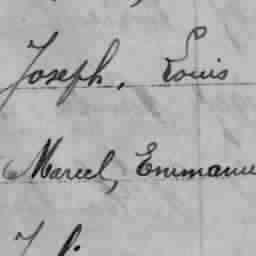 Joseph, Louis
Marcel, Emmanue